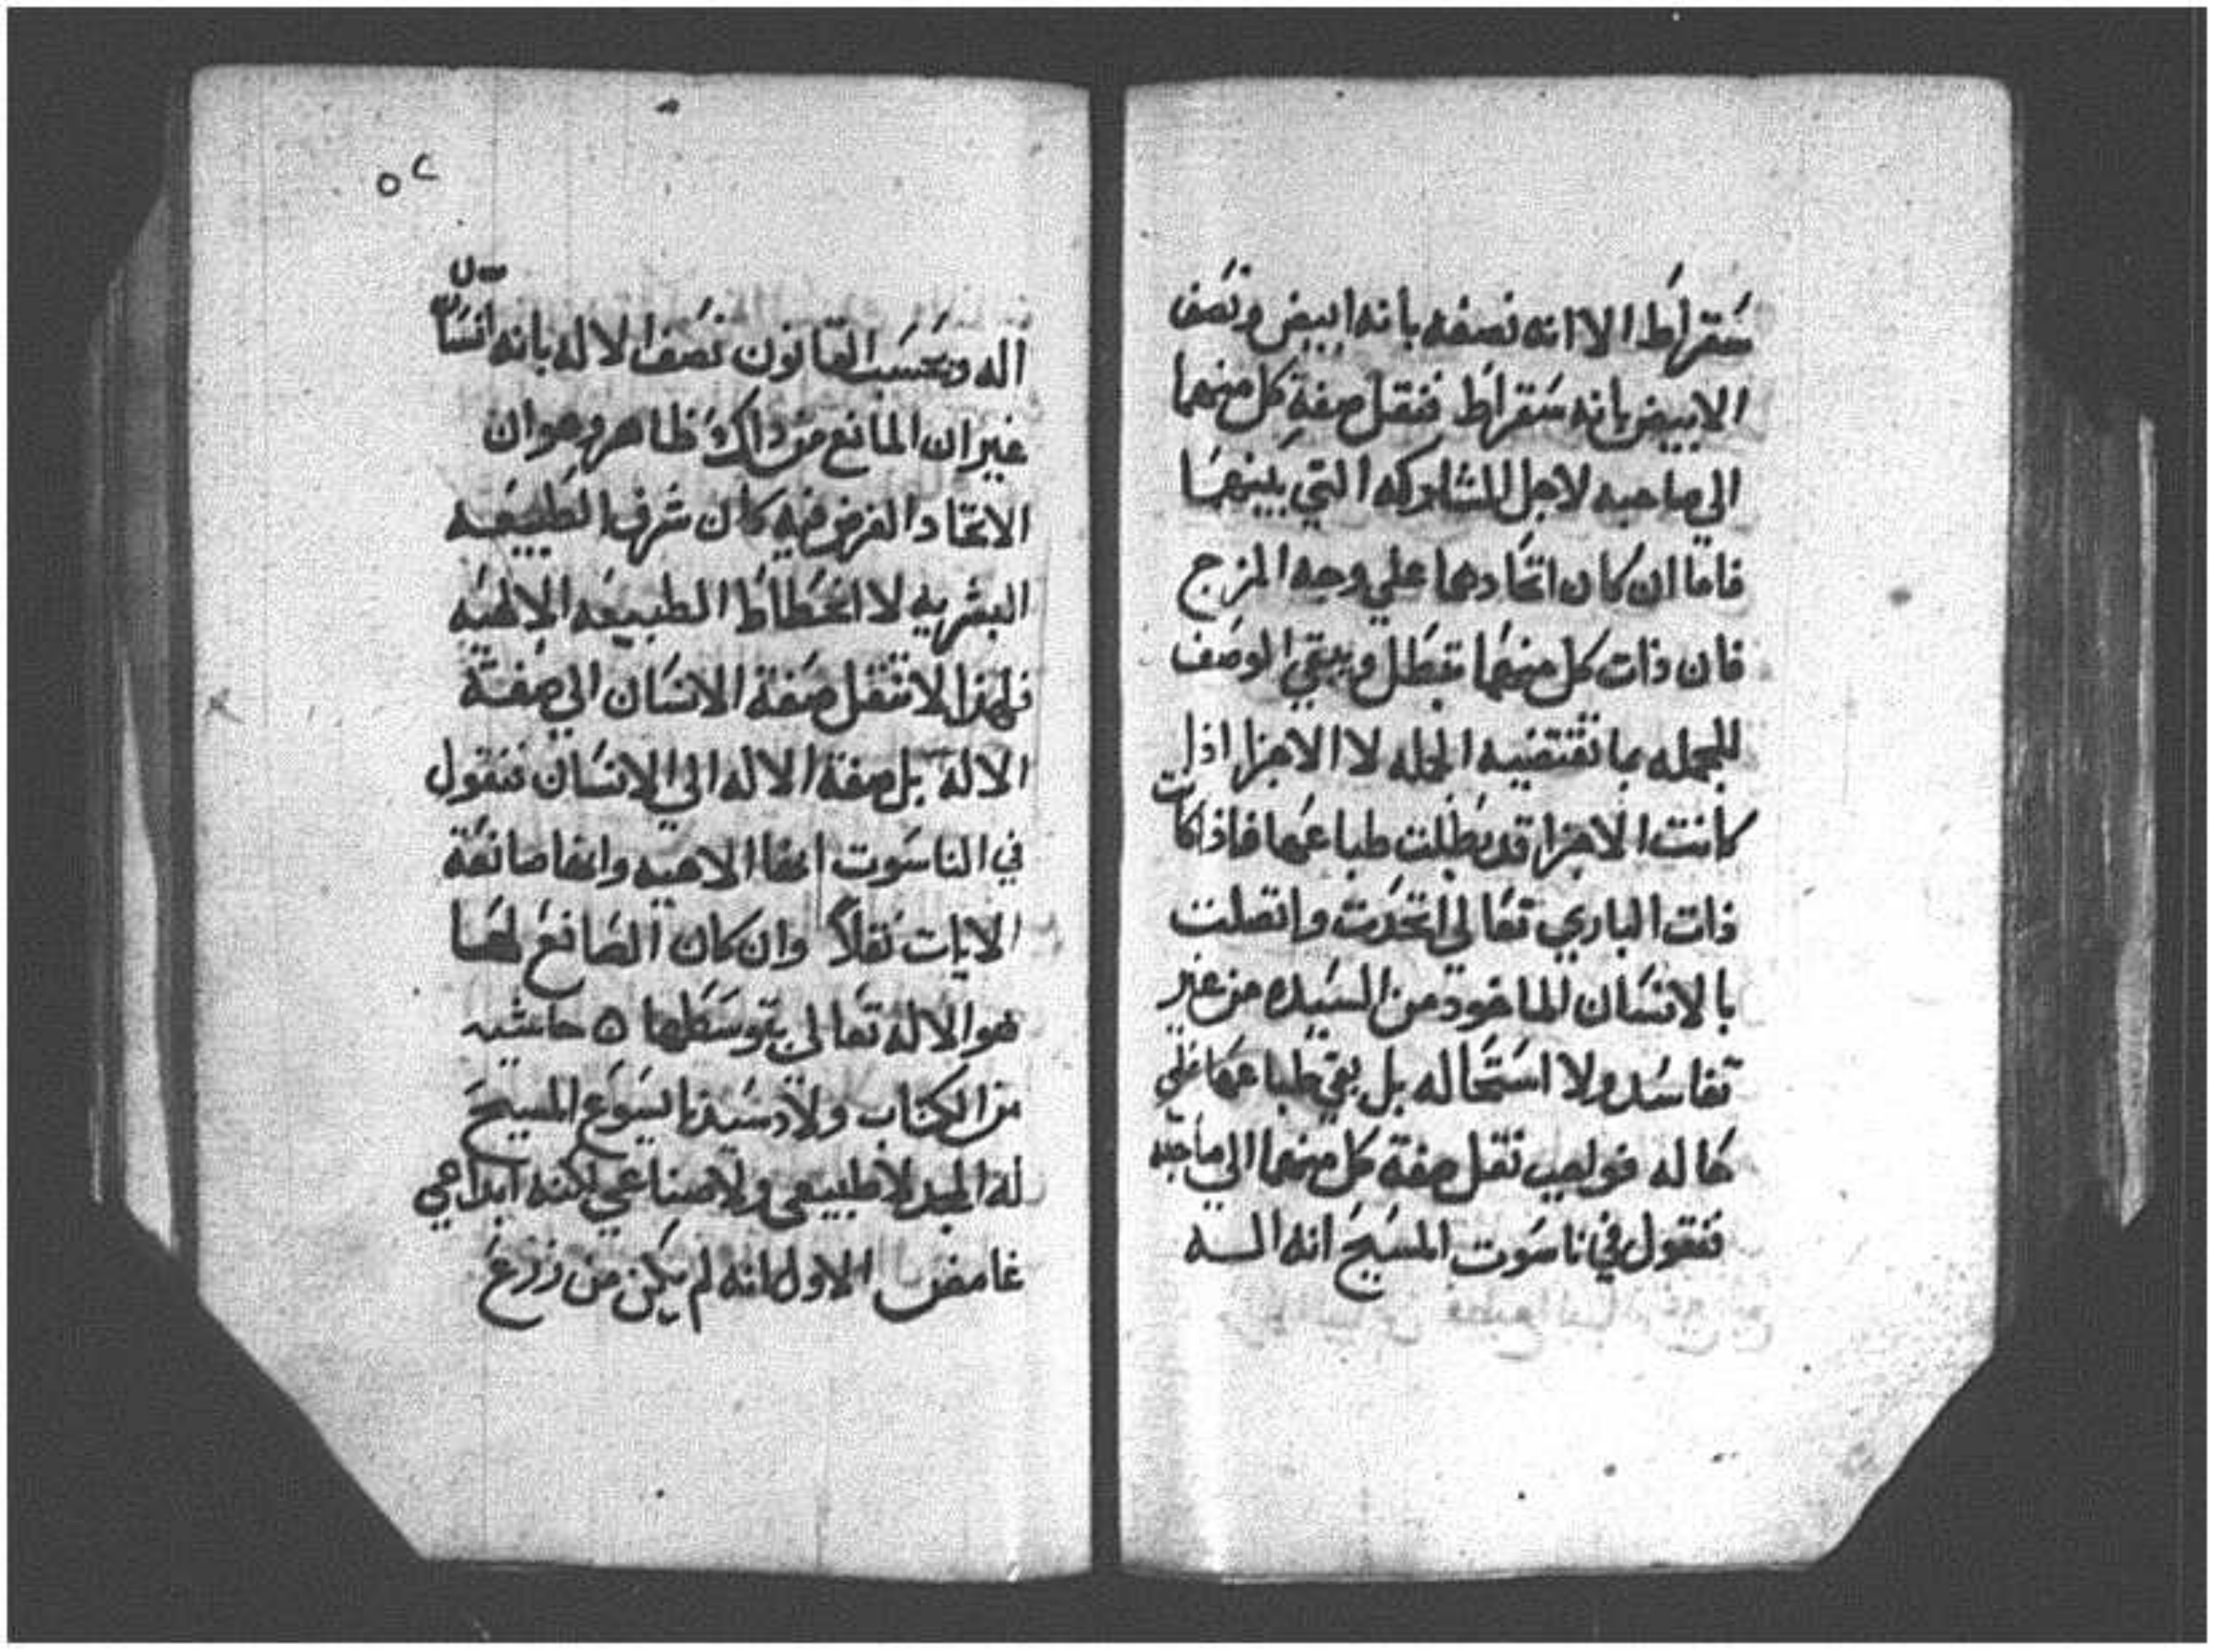 سقراط الا انه نصفه بانه ابيض ونصف
الابيض بانه سقراط فتقل صفة كل منهما
الي صاحبه لاجل المشاركه التي بينهما
فاما ان كان اتحادهما علي وجه المزج
فان ذات كل منهما تبطل ويبقي الوصف
للجمله بما تقتضيه الجمله لا الاجزا اذا
كانت الاجزا قد بطلت طباعها فاذا كانت
ذات الباري تعالي اتحدت واتصلت
بالانسان الماخود من السيده من غير
تفاسد ولا استحاله بل بقي طباعهما علي
حاله فواجب نقل صفة كل منهما الي صاحبه
فنقول في ناسوت المسيح انه اله
٥٢
اله وبحسب القانون نصف الاله بانه انسان
غير ان المانع من داك ظاهر وهو ان
الاتحاد الغرض فيه كان شرف الطبيعه
البشريه لا انحطاط الطبيعه الالهيه
فلهذا لا تنقل صفة الانسان الي صفة
الاله بل صفة الاله الي الانسان فنقول
في الناسوت انها الاهيه وانها صانعة
الايات نقلاً وان كان الصانع لها
هو الاله تعالي بتوسطها ٥ حاشيه
من الكتاب ولاد سيدنا يسوع المسيح
له المجد لا طبيعي ولا صناعي لكنه ابداعي
غامض الاول انه لم يكن من زرع